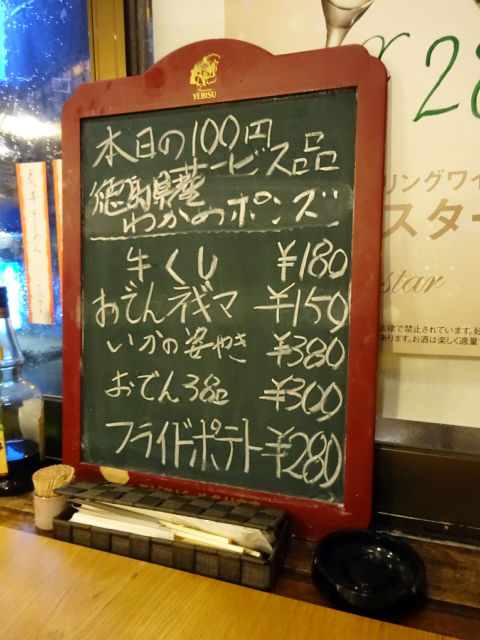 YEBISU
本日の100円
サービス品
徳島県産
わかめポンズ
牛くし ¥180
おでんネギマ ¥150
いかの姿やき ¥380
おでん3品 ¥300
フライドポテト ¥280
28
リングワイ
スター
star
法律で禁止されています。
あります。お酒は楽しく適量